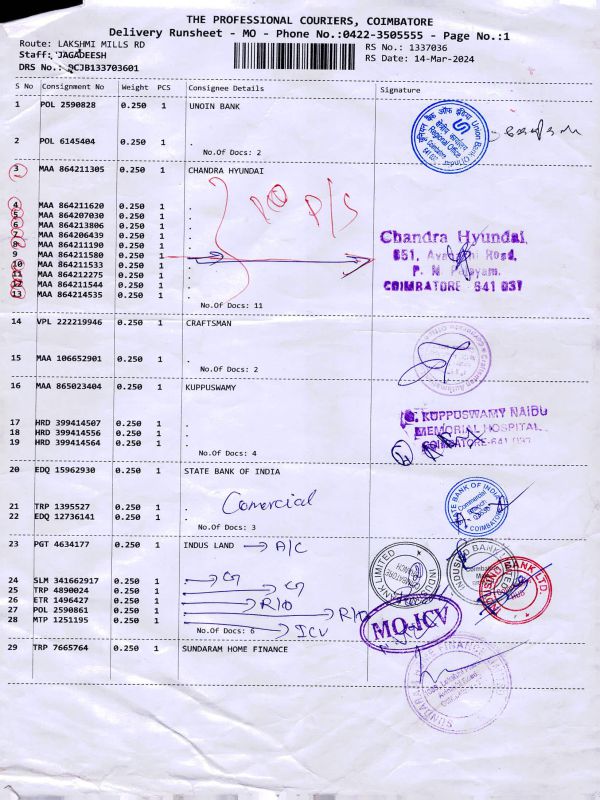 THE PROFESSIONAL COURIERS, COIMBATORE
Delivery Runsheet - MO - Phone No.:0422-3505555 - Page No.:1
Route: LAKSHMI MILLS RD
RS No.: 1337036
Staff: JAGADEESH
RS Date: 14-Mar-2024
DRS No.: PCJB133703601
S No Consignment No Weight PCS Consignee Details Signature
1 POL 2590828 0.250 1 UNOIN BANK
2 POL 6145404 0.250 1 .
No.Of Docs: 2
3 MAA 864211305 0.250 1 CHANDRA HYUNDAI
4 MAA 864211620 0.250 1 .
5 MAA 864207030 0.250 1 .
6 MAA 864213806 0.250 1 .
7 MAA 864206439 0.250 1 .
8 MAA 864211190 0.250 1 .
9 MAA 864211580 0.250 1 .
10 MAA 864211533 0.250 1 .
11 MAA 864212275 0.250 1 .
12 MAA 864211544 0.250 1 .
13 MAA 864214535 0.250 1 .
No.Of Docs: 11
P/S
Chandra Hyundai,
651, Road,
P. N.
COIMBATORE 641 037
14 VPL 222219946 0.250 1 CRAFTSMAN
15 MAA 106652901 0.250 1 .
No.Of Docs: 2
16 MAA 865023404 0.250 1 KUPPUSWAMY
17 HRD 399414507 0.250 1 .
18 HRD 399414556 0.250 1 .
19 HRD 399414564 0.250 1 .
No.Of Docs: 4
G. KUPPUSWAMY NAIDU
MEMORIAL HOSPITAL
COIMBATORE-641 037
20 EDQ 15962930 0.250 1 STATE BANK OF INDIA
Comercial
21 TRP 1395527 0.250 1 .
22 EDQ 12736141 0.250 1 .
No.Of Docs: 3
STATE BANK OF INDIA
Commercial
Branch
COIMBATORE
23 PGT 4634177 0.250 1 INDUS LAND → A/C
24 SLM 341662917 0.250 1 .
25 TRP 4890024 0.250 1 .
26 ETR 1496427 0.250 1 . R/O
27 POL 2590861 0.250 1 . R/O
28 MTP 1251195 0.250 1 . ICV
No.Of Docs: 6
MO-ICV
29 TRP 7665764 0.250 1 SUNDARAM HOME FINANCE